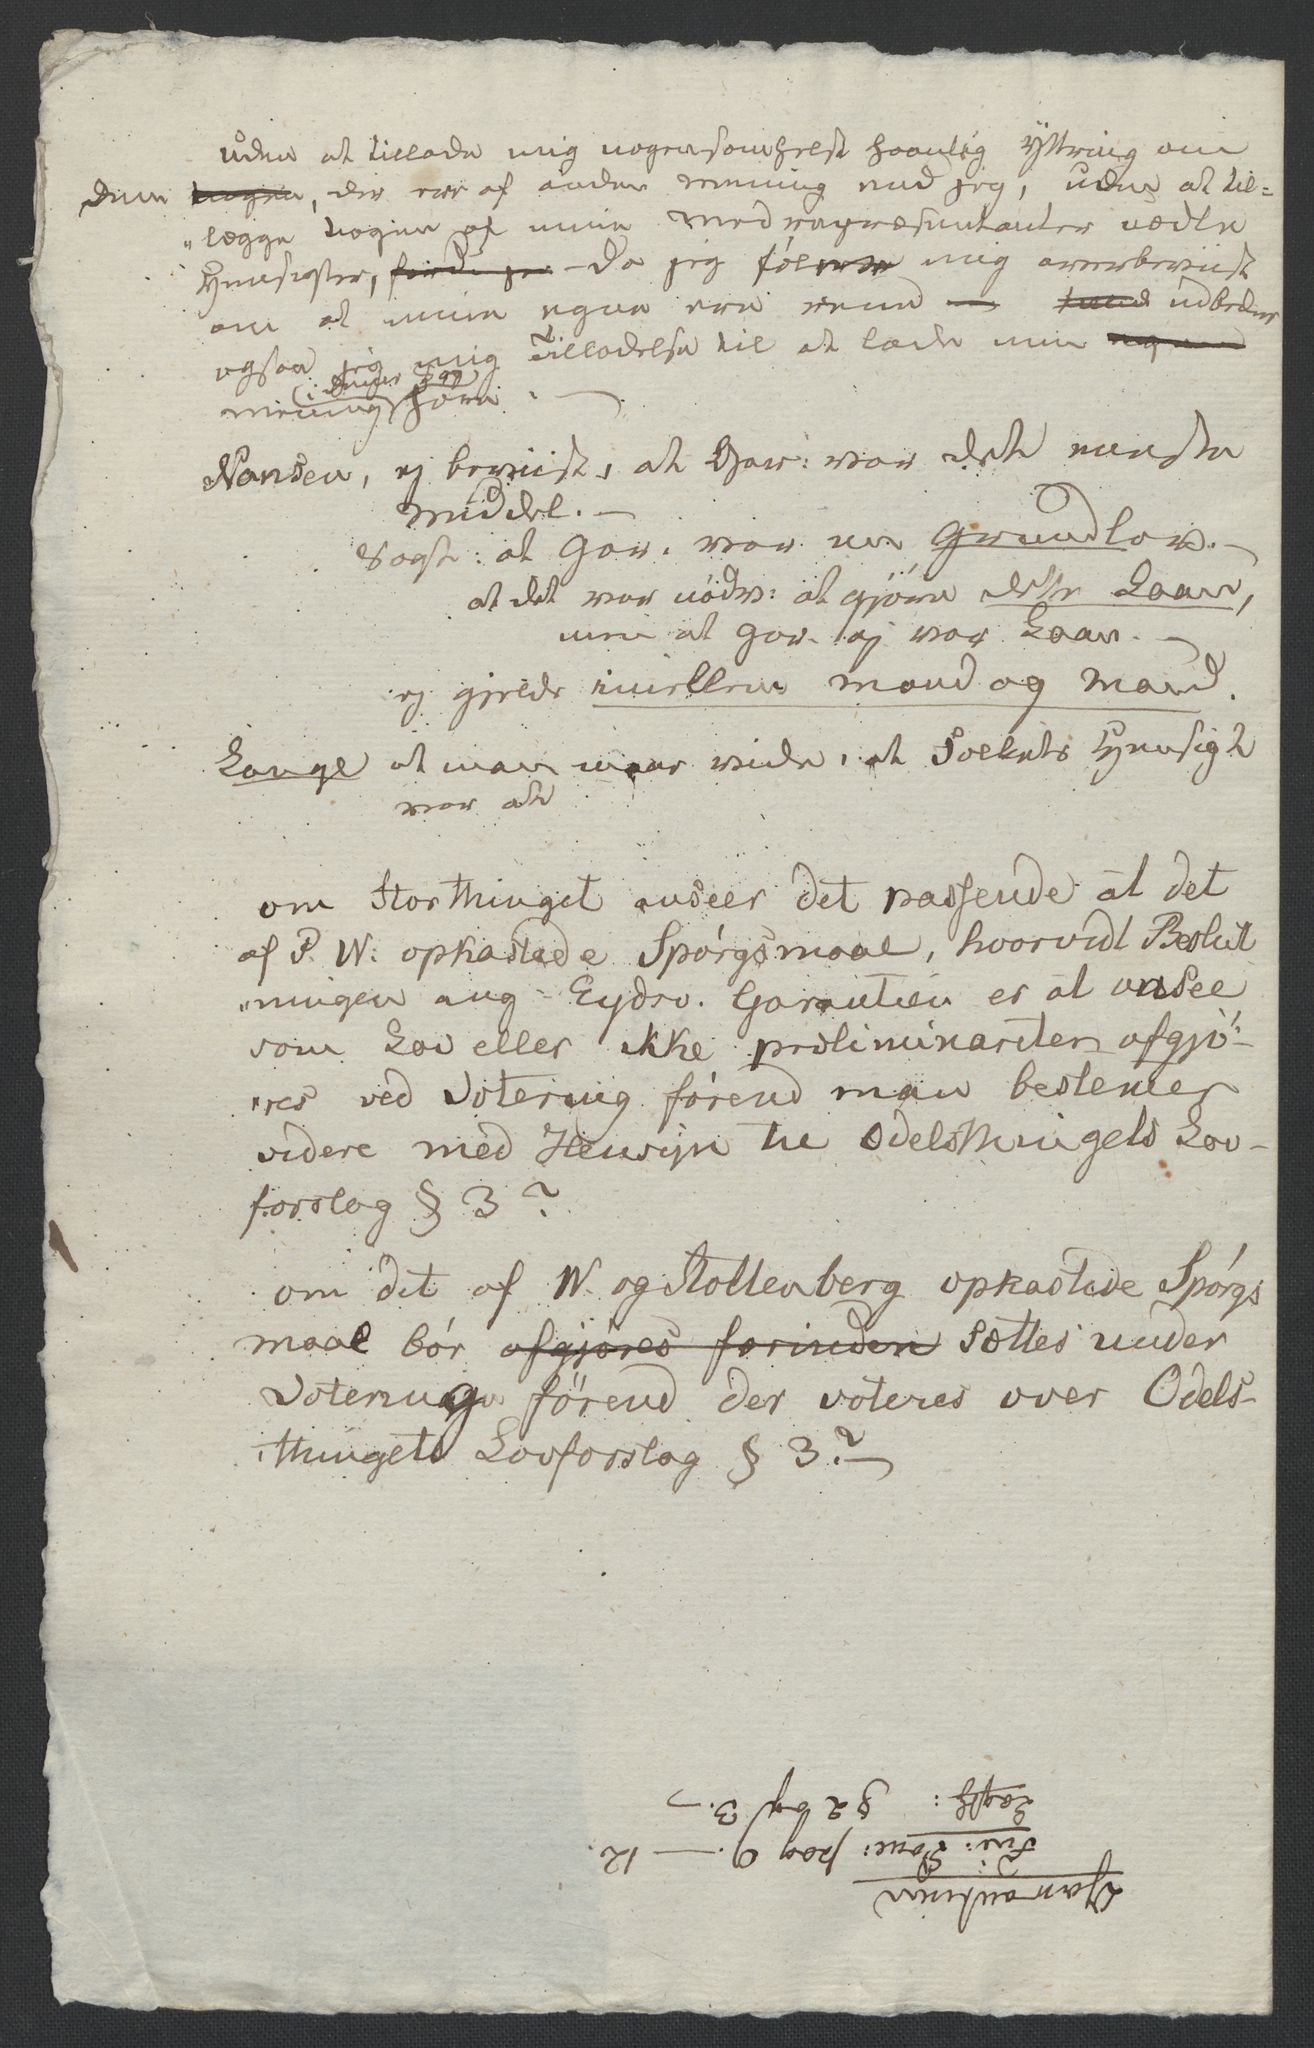 uden at tillade mig nogensomhelst haanlig Yttring om
dem nogen, der ere af anden mening end jeg, uden at til=
"lægge nogen af mine Medrepræsentanter uædle
Hensigter, fordi jeg - da jeg føler mig overbeviist
om at mine egne ere rene — udbeder
ogsaa jeg mig Tilladelse til at lade min egen
(i denne Sag)
mening høre. —
Nansen, ej beviist, at Gar: var det eneste
middel. —
Sagt: at Gar. var en Grundlov. —
at det var nødv: at gjøre dette Laan,
men at Gar. ej var Laan. —
ej gjelde imellem mand og Mand.
Lange at man maae vide, at Folkets Hensigt
var at
om Storthinget anseer det passende at det
af P. W: opkastede Spörgsmaal, hvorvidt Beslut
"ningen ang Eydsv. Garantien er at ansee
som Lov eller ikke præliminariter afgjö-
"res ved Votering förend man bestemer
videre med Hensyn til Odelsthingets Lov-
forslag § 3?
om det af W. og Stoltenberg opkastede Spörgs
maal bör afgjöres forinden sættes under
Votering förend der voteres over Odels-
thingets Lovforslag § 3? —
Garantien
Fin: Done: pag 9. — 12.
Lagth: § 2 og 3. —